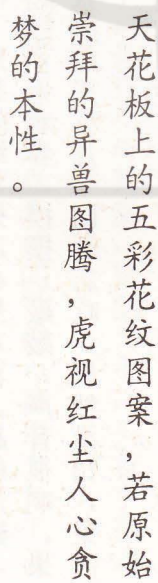 天花板上的五彩花纹图案，若原始
崇拜的异兽图腾，虎视红尘人心贪
梦的本性。